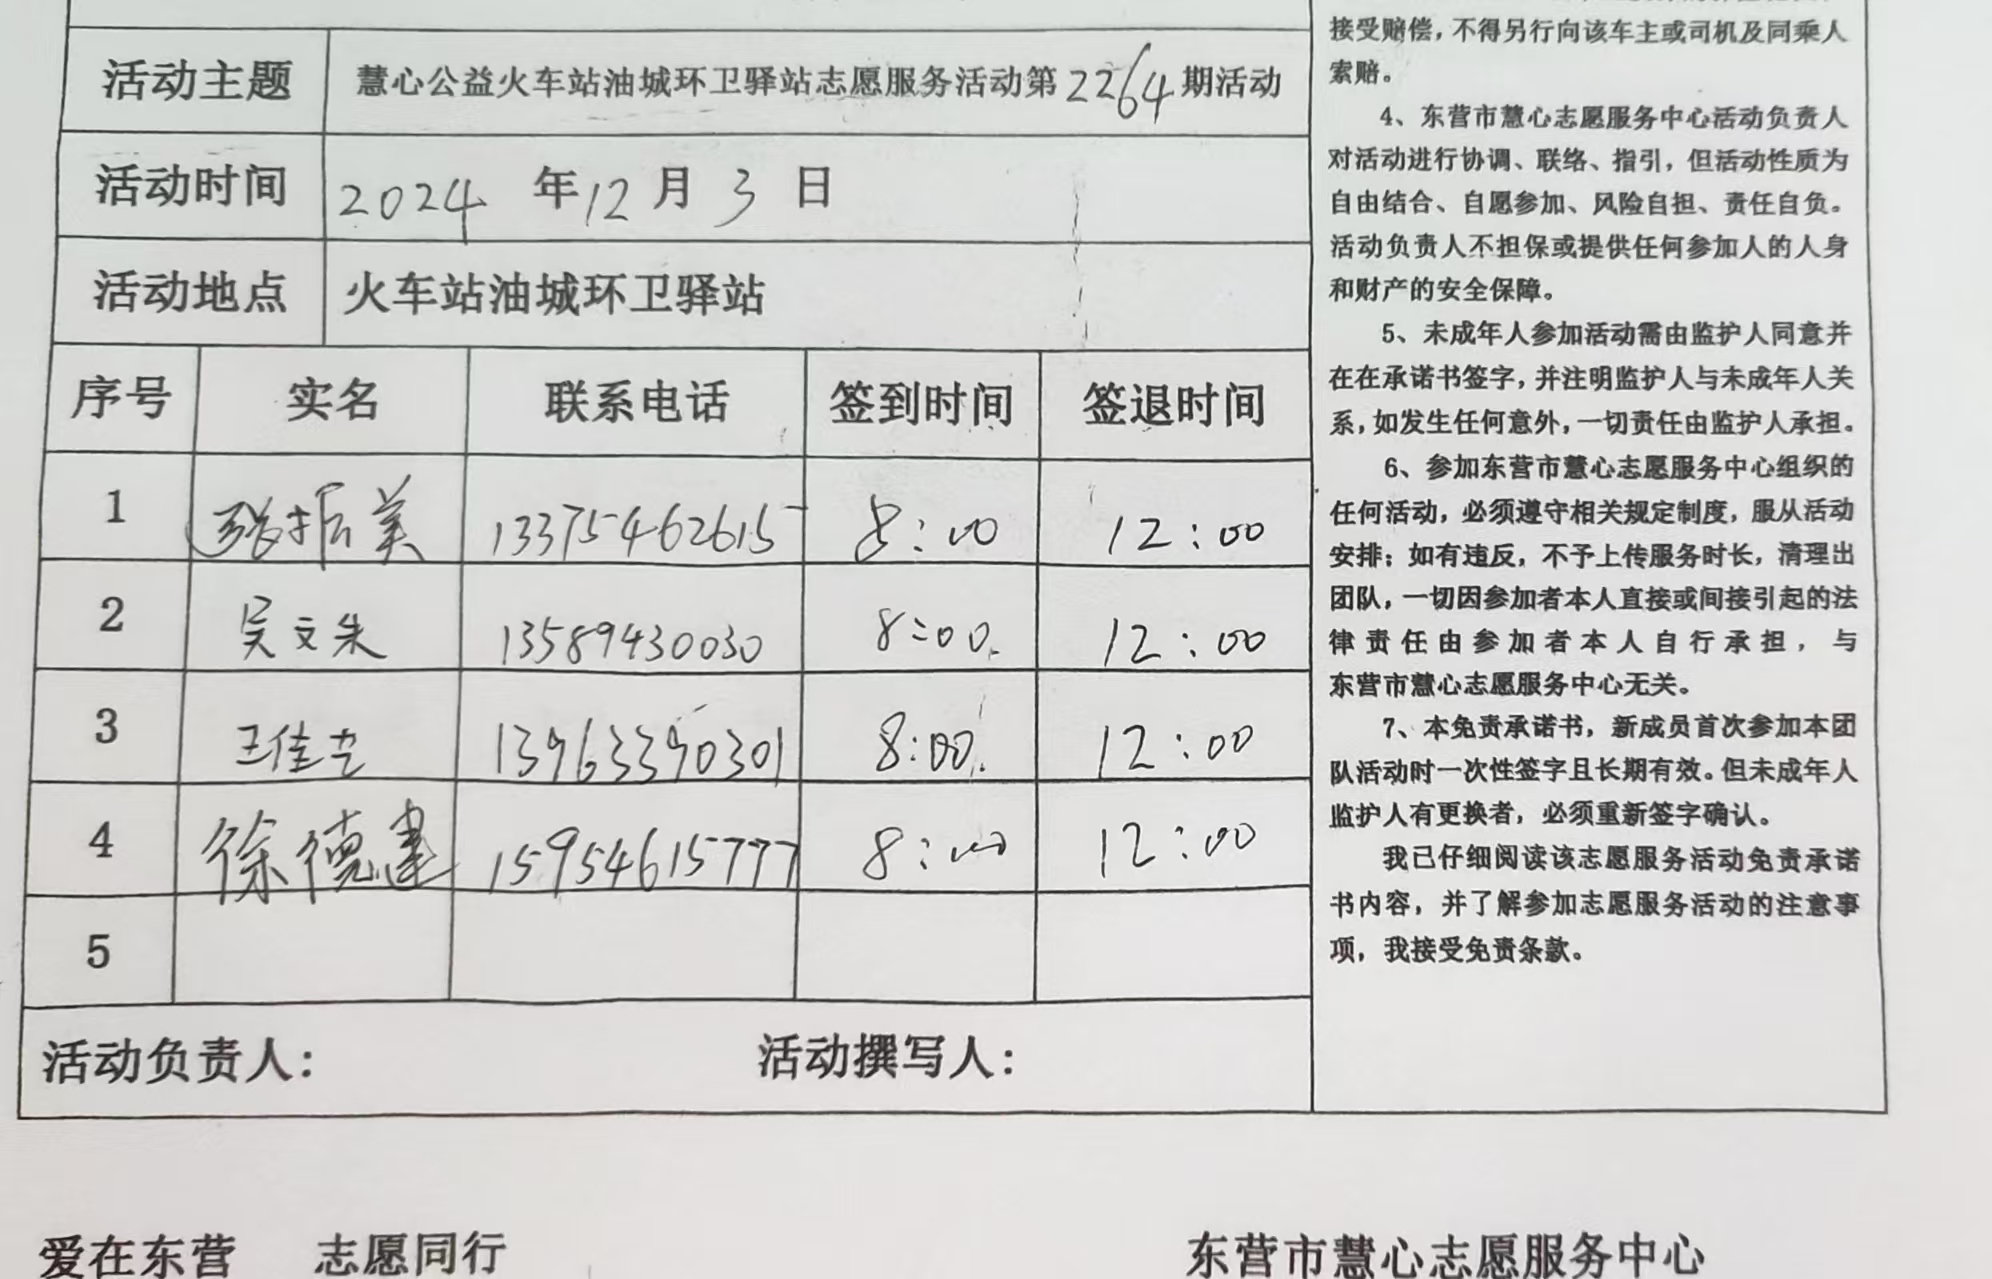 活动主题 慧心公益火车站油城环卫驿站志愿服务活动第2264期活动
活动时间 2024 年 12 月 3 日
活动地点 火车站油城环卫驿站
序号 实名 联系电话 签到时间 签退时间
1 振美 13375462615 8:00 12:00
2 吴文朱 13589430030 8:00 12:00
3 王佳 13963390301 8:00 12:00
4 徐德建 15954615777 8:00 12:00
5
活动负责人: 活动撰写人:
接受赔偿，不得另行向该车主或司机及同乘人
索赔。
4、东营市慧心志愿服务中心活动负责人
对活动进行协调、联络、指引，但活动性质为
自由结合、自愿参加、风险自担、责任自负。
活动负责人不担保或提供任何参加人的人身
和财产的安全保障。
5、未成年人参加活动需由监护人同意并
在在承诺书签字，并注明监护人与未成年人关
系，如发生任何意外，一切责任由监护人承担。
6、参加东营市慧心志愿服务中心组织的
任何活动，必须遵守相关规定制度，服从活动
安排；如有违反，不予上传服务时长，清理出
团队，一切因参加者本人直接或间接引起的法
律责任由参加者本人自行承担，与
东营市慧心志愿服务中心无关。
7、本免责承诺书，新成员首次参加本团
队活动时一次性签字且长期有效。但未成年人
监护人有更换者，必须重新签字确认。
我已仔细阅读该志愿服务活动免责承诺
书内容，并了解参加志愿服务活动的注意事
项，我接受免责条款。
爱在东营 志愿同行 东营市慧心志愿服务中心